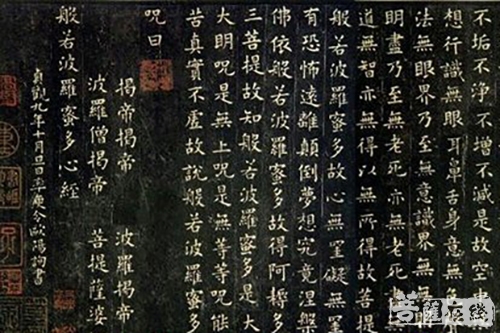 不垢不淨不增不減是故空中
想行識無眼耳鼻舌身意無色
法無眼界乃至無意識界無無
明盡乃至無老死亦無老死
道無智亦無得以無所得故菩提
般若波羅蜜多故心無罣礙無罣
有恐怖遠離顛倒夢想究竟涅槃
佛依般若波羅蜜多故得阿耨多
三菩提故知般若波羅蜜多是大
大明呪是無上呪是無等等呪能
苦真實不虛故說般若波羅蜜多
呪曰
揭帝揭帝 波羅揭帝
波羅僧揭帝 菩提薩婆
般若波羅蜜多心經
貞觀九年十月旦日率更令歐陽詢書